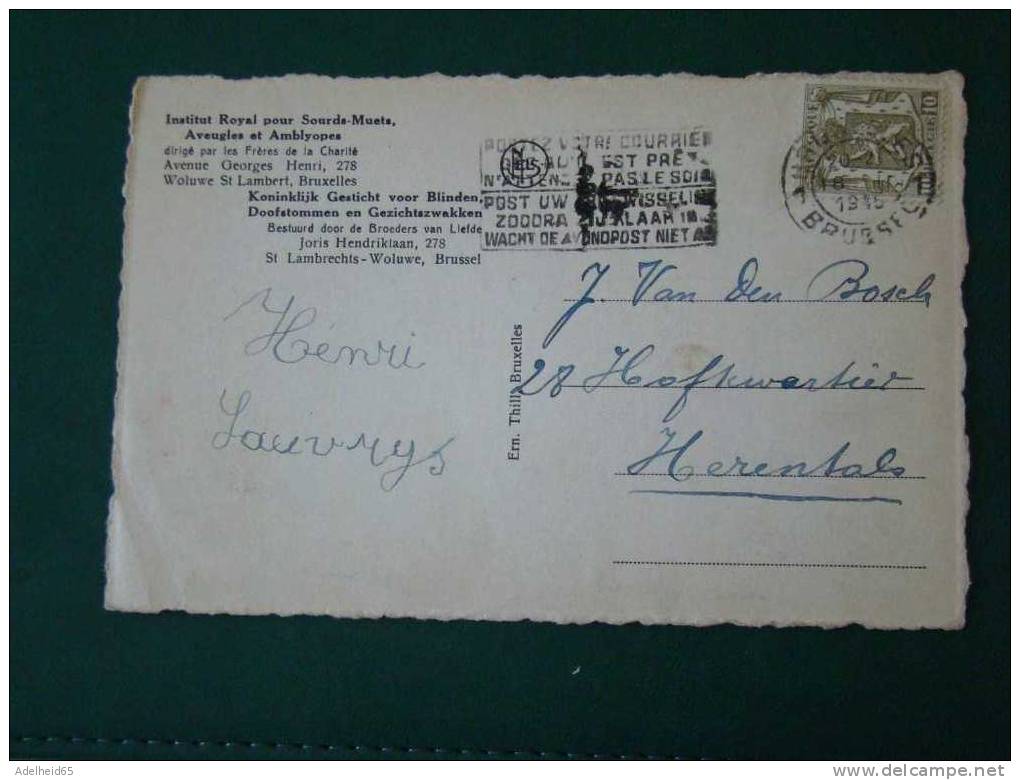 Institut Royal pour Sourds-Muets,
Aveugles et Amblyopes
dirigé par les Frères de la Charité
Avenue Georges Henri, 278
Woluwe St Lambert, Bruxelles
Koninklijk Gesticht voor Blinden,
Doofstommen en Gezichtszwakken
Bestuurd door de Broeders van Liefde
Joris Hendriklaan, 278
St Lambrechts-Woluwe, Brussel
VOTRE COURRIER
EST PRÊT
PAS LE SOIR
POST UW WISSELIN
ZOODRA KLAAR IS
WACHT DE AVONDPOST NIET AF
10
18
1945
J. Van den Bosch
28 Hofkwartier
Herentals
Henri
Lauvrys
Ern. Thill, Bruxelles
Adelheid65
delcampe.net